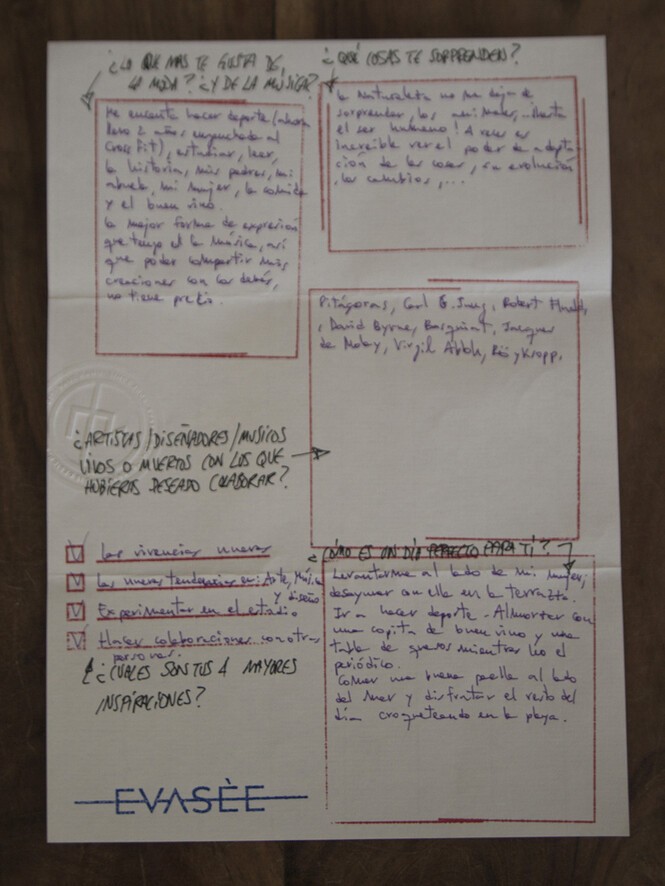 ¿LO QUE MAS TE GUSTA DE
LA MODA? ¿Y DE LA MÚSICA?
Me encanta hacer deporte (ahora
llevo 2 años enganchado al
Cross Fit), estudiar, leer,
la historia, mis padres, mi
abuela, mi mujer, la comida
y el buen vino.
La mejor forma de expresión
que tengo el la Música, así
que poder compartir mis
creaciones con los demás,
no tiene precio.
¿QUÉ COSAS TE SORPRENDEN?
La Naturaleza no me deja de
sorprender, los animales,... ¡hasta
el ser humano! A veces es
increíble ver el poder de adapta-
ción de las cosas, su evolución
, los cambios, ...
Pitágoras, Carl G. Jung, Robert
, David Byrne, Basquiat, Jacques
de Molay, Virgil Abloh, Röyksopp.
¿ARTISTAS/DISEÑADORES/MUSICOS
VIVOS O MUERTOS CON LOS QUE
HUBIERAS DESEADO COLABORAR?
Las vivencias nuevas
Las nuevas tendencias en: Arte, Música
y diseño
Experimentar en el estudio
Hacer colaboraciones con otras
personas.
¿CUALES SON TUS 4 MAYORES
INSPIRACIONES?
¿CÓMO ES UN DÍA PERFECTO PARA TÍ?
Levantarme al lado de mi mujer,
desayunar con ella en la terraza.
Ir a hacer deporte. Almorzar con
una copita de buen vino y una
tabla de quesos mientras leo el
periódico.
Comer una buena paella al lado
del mar y disfrutar el resto del
día croqueteando en la playa.
EVASÈE